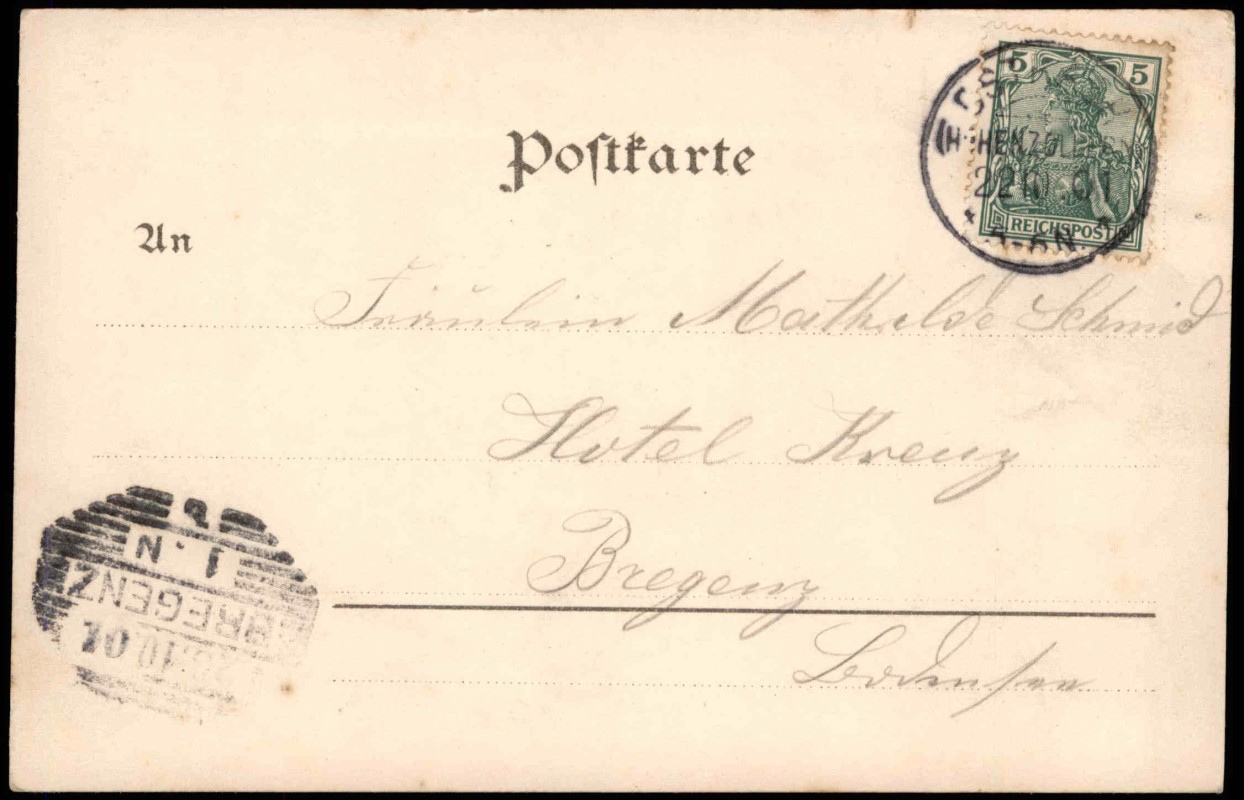 5 5
(HOHENZOLLERN)
22 10 01
REICHSPOST
Postkarte
An
Fräulein Mathilde Schmid
Hotel Kreuz
Bregenz
Bodensee
1. N
BREGENZ
.10.01